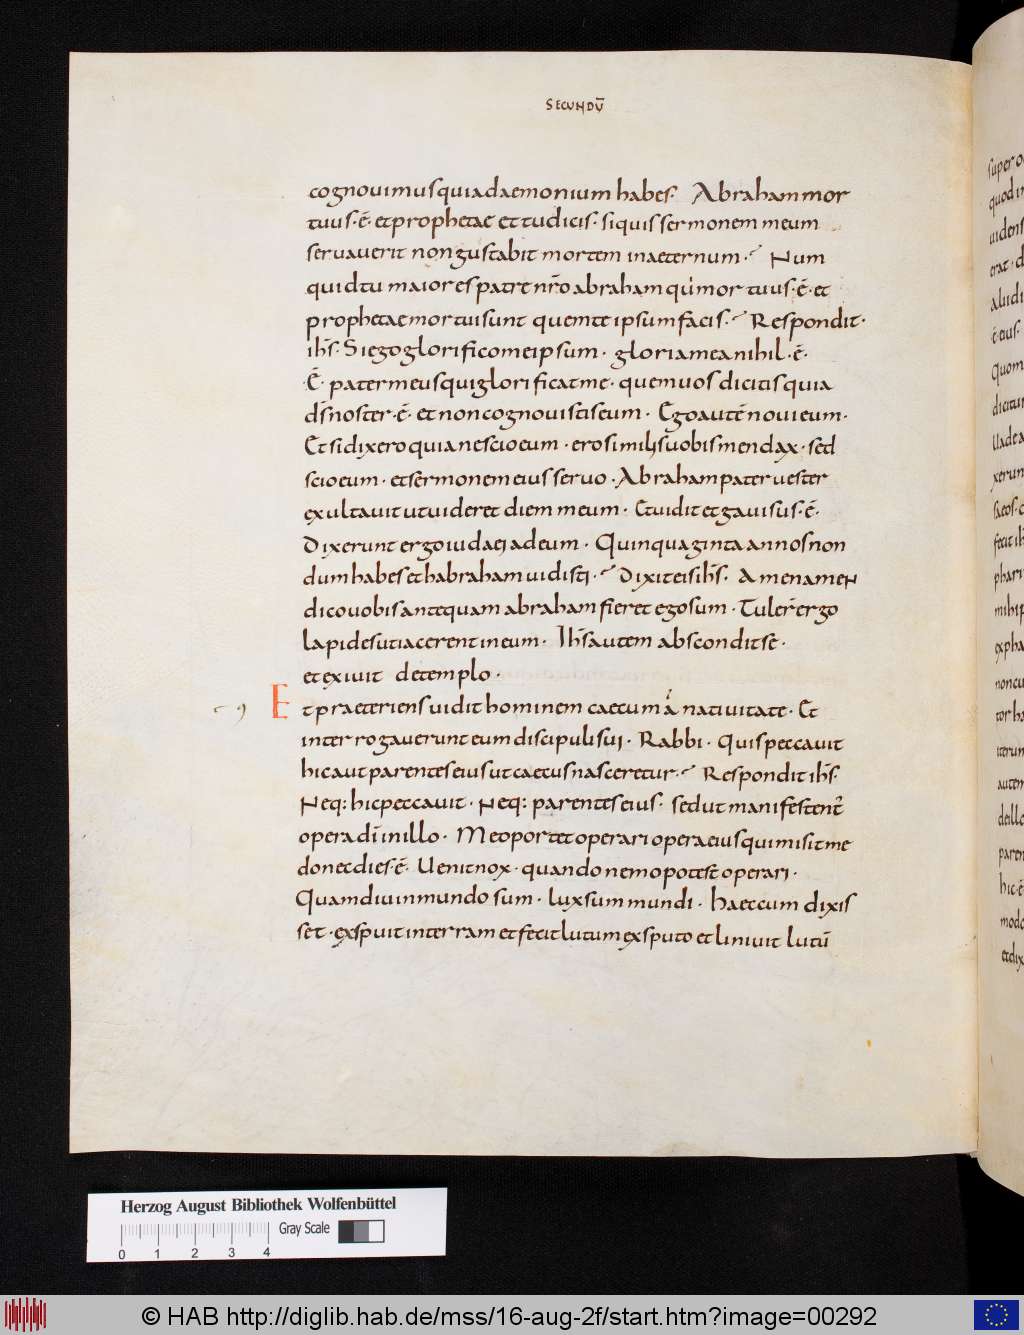 SECUNDU̅
cognovimus quia daemonium habes· Abraham mor
tuus·ē· et prophetae et tu dicis· si quis sermonem meum
servaverit non gustabit mortem in aeternum· Num
quid tu maior es patre nr̄o abraham qui mortuus·ē· et
prophetae mortui sunt quem te ipsum facis· Respondit·
ih̄s· Si ego glorifico me ipsum· gloria mea nihil·ē·
·Ē· pater meus qui glorificat me· quem vos dicitis quia
d̄s noster·ē· et non cognovistis eum· Ego autē novi eum·
Et si dixero quia nescio eum· ero similis vobis mendax· sed
scio eum· et sermonem eius servo· Abraham pater vester
exultavit ut videret diem meum· Et vidit et gavisus·ē·
Dixerunt ergo iudaei ad eum· Quinquaginta annos non
dum habes et habraham vidisti· Dixit eis ih̄s· Amen amen
dico vobis antequam abraham fieret ego sum· Tuler̄ ergo
lapides ut iacerent in eum· Ih̄s autem abscondit se·
et exivit de templo·
Et praeteriens vidit hominem caecum á nativitate· Et
interrogaverunt eum discipuli sui· Rabbi· Quis peccavit
hic aut parentes eius ut caecus nasceretur· Respondit ih̄s·
Neq: hic peccavit· Neq: parentes eius· sed ut manifestent̄
opera dī in illo· Me oportet operari opera eius qui misit me
donec dies·ē· Venit nox· quando nemo potest operari·
Quamdiu in mundo sum· lux sum mundi· Haec cum dixis
set· exspuit in terram et fecit lutum ex sputo et linivit lutū
super o
quod in
videns
erat· d
alii di
·ē· eius·
Quom
dicitur
Vade a
xerun
saeos· c
fecit ih
phari
mihi p
ex pha
non cu
tor ha
iterun
autem
de illo
paren
hic·ē
modo
et dix
Herzog August Bibliothek Wolfenbüttel
Gray Scale
0 1 2 3 4
© HAB http://diglib.hab.de/mss/16-aug-2f/start.htm?image=00292